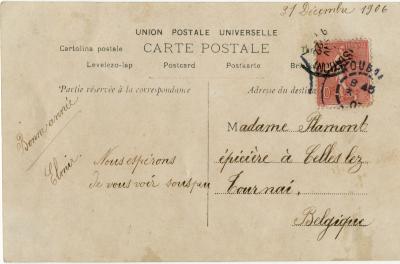 31 Décembre 1906
UNION POSTALE UNIVERSELLE
CARTE POSTALE
Cartolina postale
Levelezo-lap Postcard Postkarte
Partie réservée à la correspondance
Adresse du destina
Bonne année
Nous espérons
de vous voir sous peu
Madame Flamont
épicière à Celles lez
Tournai,
Belgique